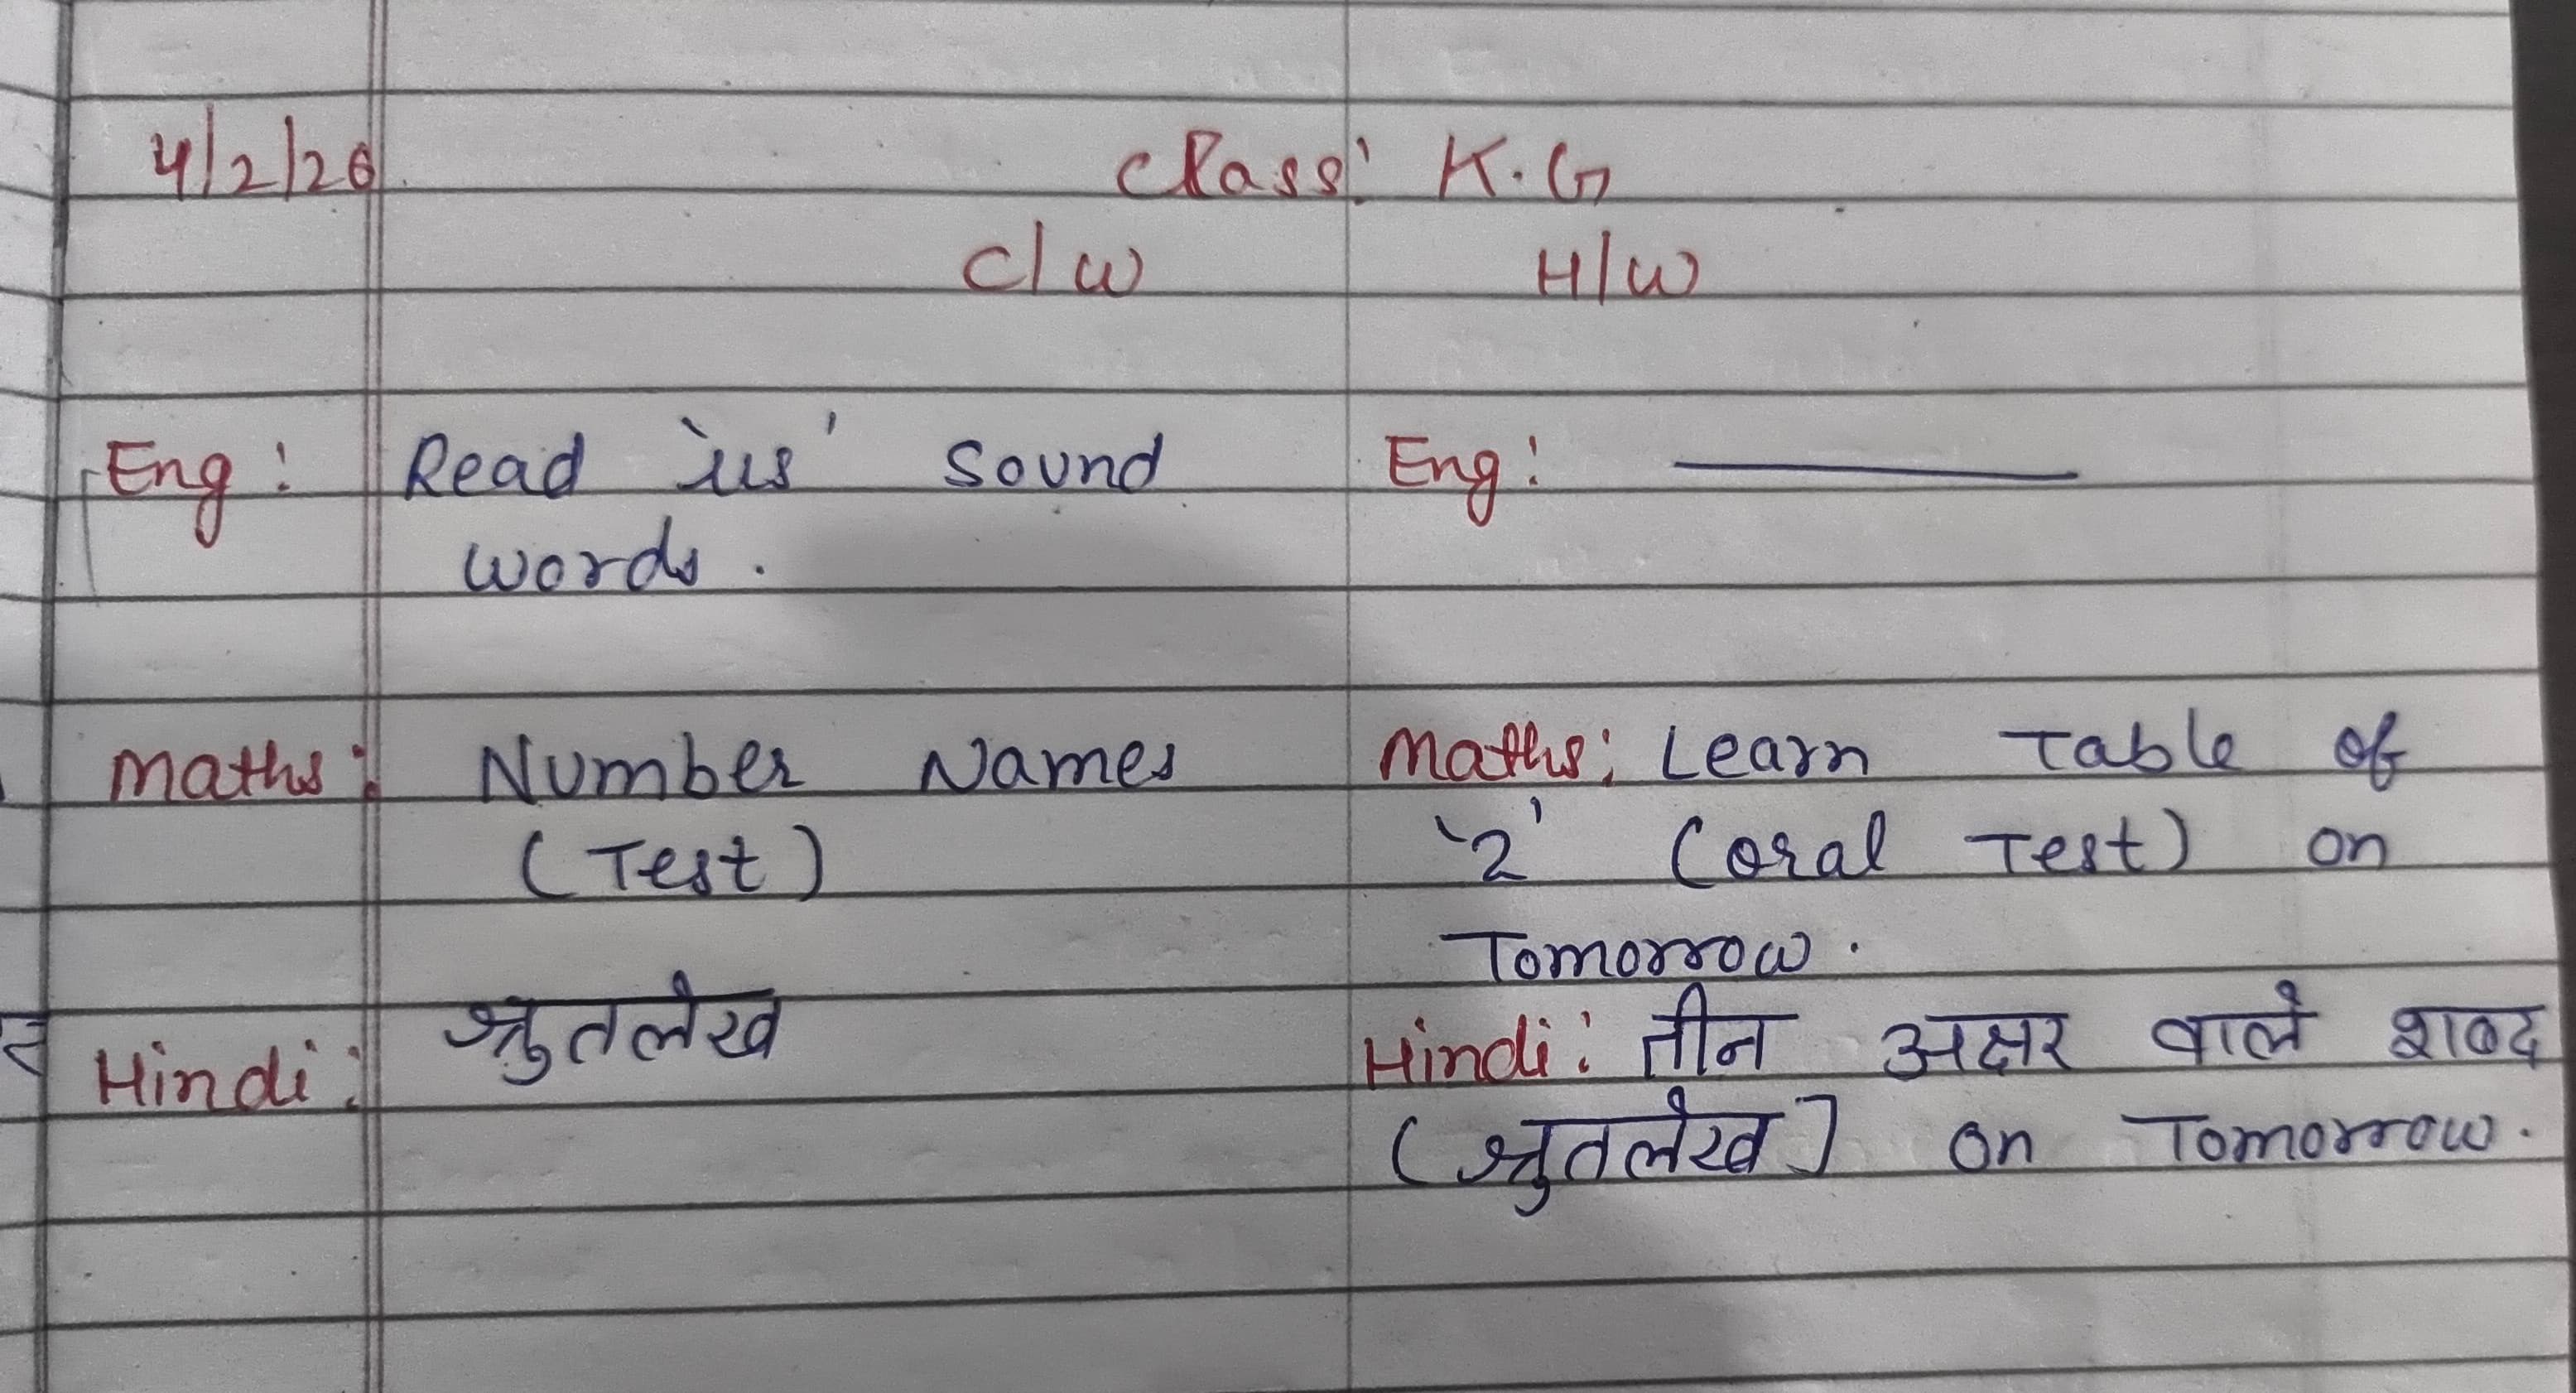 4/2/26
Class: K.G
C/W H/W
Eng: Read 'us' sound
words.
Eng:
Maths: Number Names
(Test)
Maths: Learn Table of
'2' (oral Test) on
Tomorrow.
Hindi: श्रुतलेख
Hindi: तीन अक्षर वाले शब्द
(श्रुतलेख) on Tomorrow.